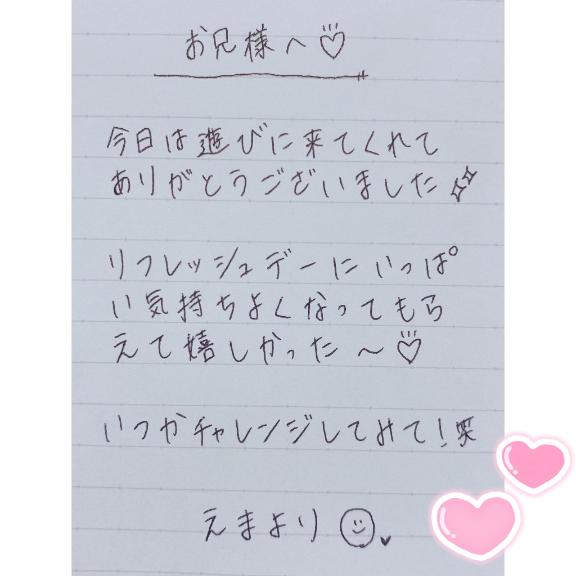 お兄様へ♡
今日は遊びに来てくれて
ありがとうございました✨
リフレッシュデーにいっぱ
い気持ちよくなってもら
えて嬉しかった〜♡
いつかチャレンジしてみて!笑
えまより